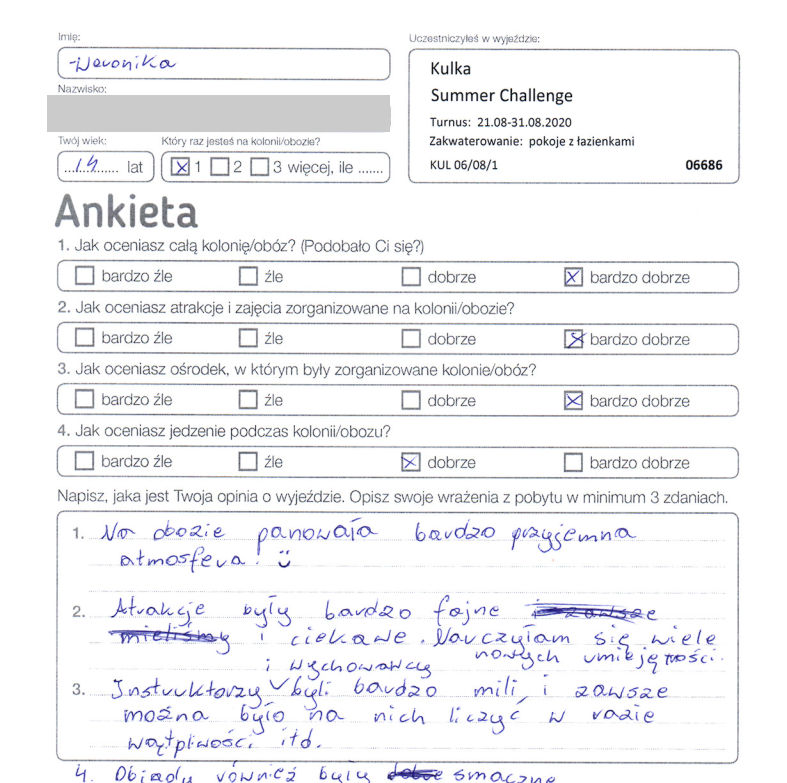 Imię:
Weronika
Nazwisko:
Twój wiek:
14 lat
Który raz jesteś na kolonii/obozie?
1 2 3 więcej, ile .......
Uczestniczyłeś w wyjeździe:
Kulka
Summer Challenge
Turnus: 21.08-31.08.2020
Zakwaterowanie: pokoje z łazienkami
KUL 06/08/1 06686
Ankieta
1. Jak oceniasz całą kolonię/obóz? (Podobało Ci się?)
bardzo źle źle dobrze bardzo dobrze
2. Jak oceniasz atrakcje i zajęcia zorganizowane na kolonii/obozie?
bardzo źle źle dobrze bardzo dobrze
3. Jak oceniasz ośrodek, w którym były zorganizowane kolonie/obóz?
bardzo źle źle dobrze bardzo dobrze
4. Jak oceniasz jedzenie podczas kolonii/obozu?
bardzo źle źle dobrze bardzo dobrze
Napisz, jaka jest Twoja opinia o wyjeździe. Opisz swoje wrażenia z pobytu w minimum 3 zdaniach.
1. Na obozie panowała bardzo przyjemna
atmosfera! :)
2. Atrakcje były bardzo fajne i zawsze
mieliśmy i ciekawe. Nauczyłam się wiele
nowych umiejętności.
i wychowawcy
3. Instruktorzy byli bardzo mili i zawsze
można było na nich liczyć w razie
wątpliwości itd.
4. Obiady również były dobre smaczne